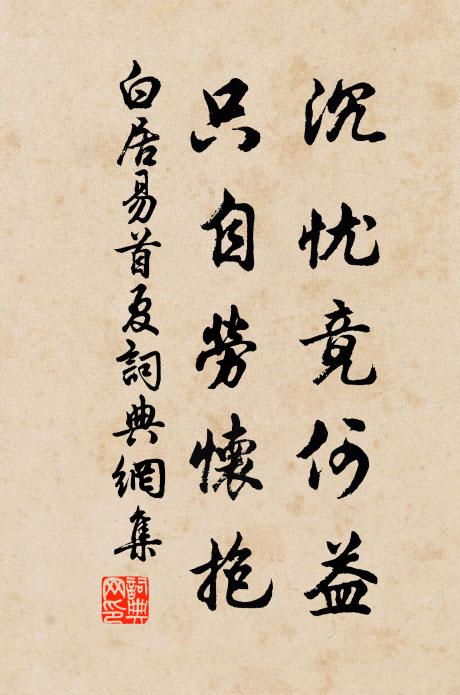 沉忧竟何益
只自勞懷抱
白居易首夏詞典網集
詞典網印